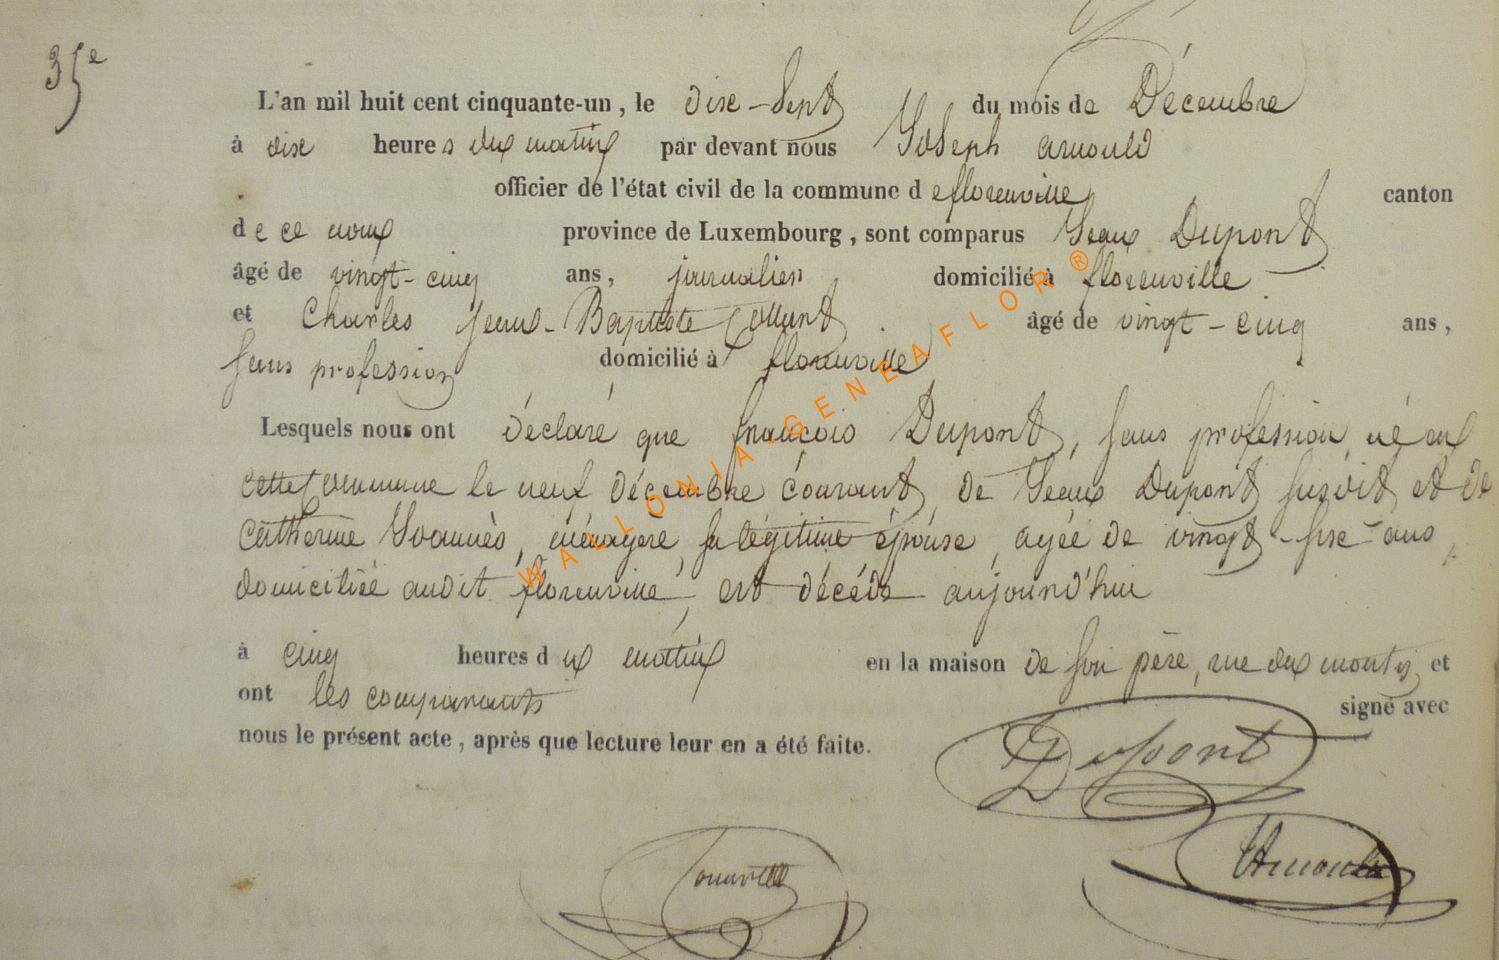 35e
L'an mil huit cent cinquante-un, le dix-sept du mois de Décembre
à dix heures du matin par devant nous Joseph Arnould
officier de l'état civil de la commune de florenville canton
de ce nom province de Luxembourg, sont comparus Jean Dupont
âgé de vingt-cinq ans, journalier domicilié à florenville
et Charles Jean-Baptiste âgé de vingt-cinq ans,
sans profession domicilié à florenville
Lesquels nous ont déclaré que françois Dupont, sans profession, né en
cette commune le neuf décembre courant, de Jean Dupont susdit et de
Catherine Joannès, ménagère, sa légitime épouse, agée de vingt-six-ans,
domiciliée audit florenville, est décédé aujourd'hui
à cinq heures du matin en la maison de son père, rue du et
ont les comparants signé avec
nous le présent acte, après que lecture leur en a été faite.
Dupont
JArnould
WALLONIA-GENEAFLOR®